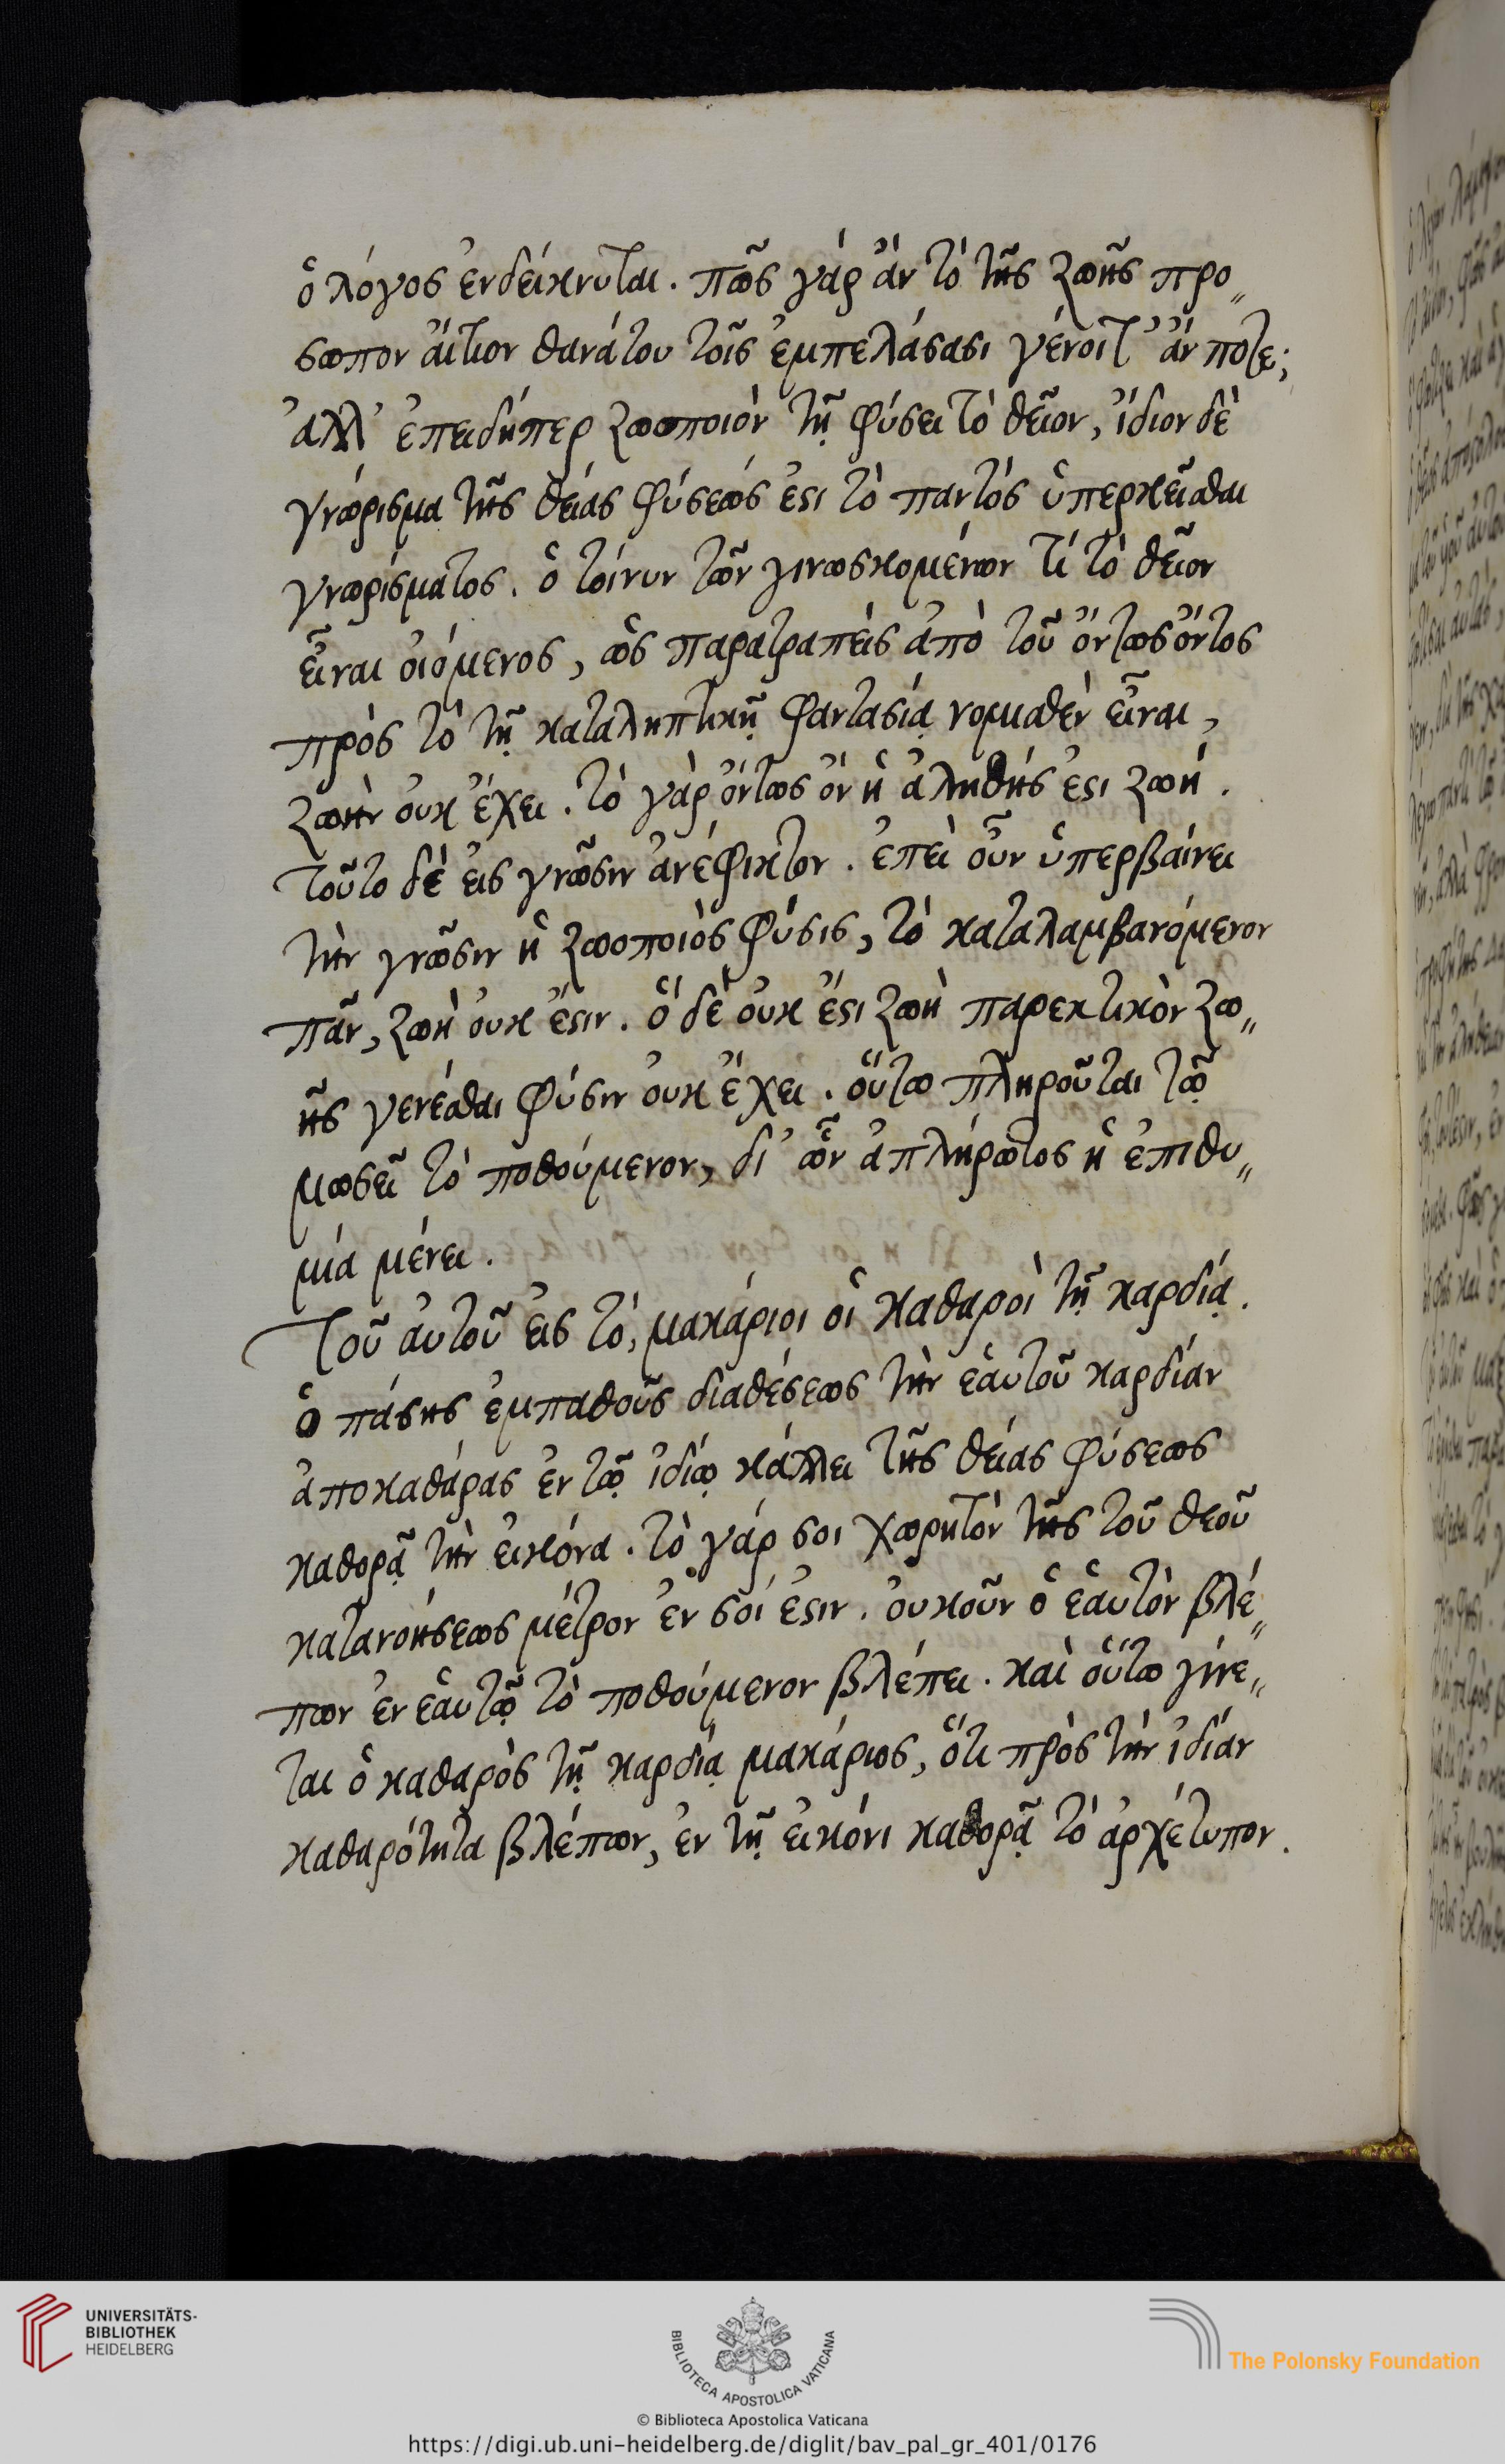 ὁ λόγος ἐνδείκνυται. πῶς γάρ ἂν τὸ τῆς ζωῆς προ„
σωπον ἄιτιον θανάτου τοῖς ἐμπελάσασι γένοιτ' ἄν ποτε;
ἀλλ' ἐπειδήπερ ζωοποιὸν τῇ φύσει τὸ θεῖον, ἴδιον δὲ
γνώρισμα τῆς θείας φύσεώς ἐστι τὸ παντός ὑπερκεῖσθαι
γνωρίσματος. ὁ τοίνυν τῶν γινωσκομένων τὶ τὸ θεῖον
εἶναι οἰόμενος, ὡς παρατραπεὶς ἀπὸ τοῦ ὄντως ὄντος
πρὸς τὸ τῇ καταληπτικῇ φαντασίᾳ νομισθὲν εἶναι,
ζωὴν οὐκ ἔχει. τὸ γὰρ ὄντως ὂν ἡ ἀληθής ἐστι ζωή.
τοῦτο δὲ εἰς γνῶσιν ἀνέφικτον. ἐπεὶ οὖν ὑπερβαίνει
τὴν γνῶσιν ἡ ζωοποιὸς φύσις, τὸ καταλαμβανόμενον
πᾶν, ζωὴ οὐκ ἔστιν. ὃ δὲ οὐκ ἔστι ζωὴ παρεκτικὸν ζω„
ῆς γενέσθαι φύσιν οὐκ ἔχει. οὕτω πληροῦται τῷ
μωσεῖ τὸ ποθούμενον, δι' ὧν ἀπλήρωτος ἡ ἐπιθυ„
μία μένει.
Τοῦ ἀυτοῦ εἰς τὸ, μακάριοι οἱ καθαροὶ τῇ καρδίᾳ.
Ὁ πάσης ἐμπαθοῦς διαθέσεως τὴν ἑαυτοῦ καρδίαν
ἀποκαθάρας ἐν τῷ ἰδίῳ κάλλει τῆς θείας φύσεως
καθορᾷ τὴν εἰκόνα. τὸ γάρ σοι χωρητὸν τῆς τοῦ θεοῦ
κατανοήσεως μέτρον ἐν σοί ἐστιν. οὐκοῦν ὁ ἑαυτὸν βλέ„
πων ἐν ἑαυτῷ τὸ ποθούμενον βλέπει. καὶ οὕτω γίνε„
ται ὁ καθαρὸς τῇ καρδίᾳ μακάριος, ὅτι πρὸς τὴν ἰδίαν
καθαρότητα βλέπων, ἐν τῇ εἰκόνι καθορᾷ τὸ ἀρχέτυπον.
UNIVERSITÄTS-
BIBLIOTHEK
HEIDELBERG
BIBLIOTECA APOSTOLICA VATICANA
The Polonsky Foundation
© Biblioteca Apostolica Vaticana
https://digi.ub.uni-heidelberg.de/diglit/bav_pal_gr_401/0176